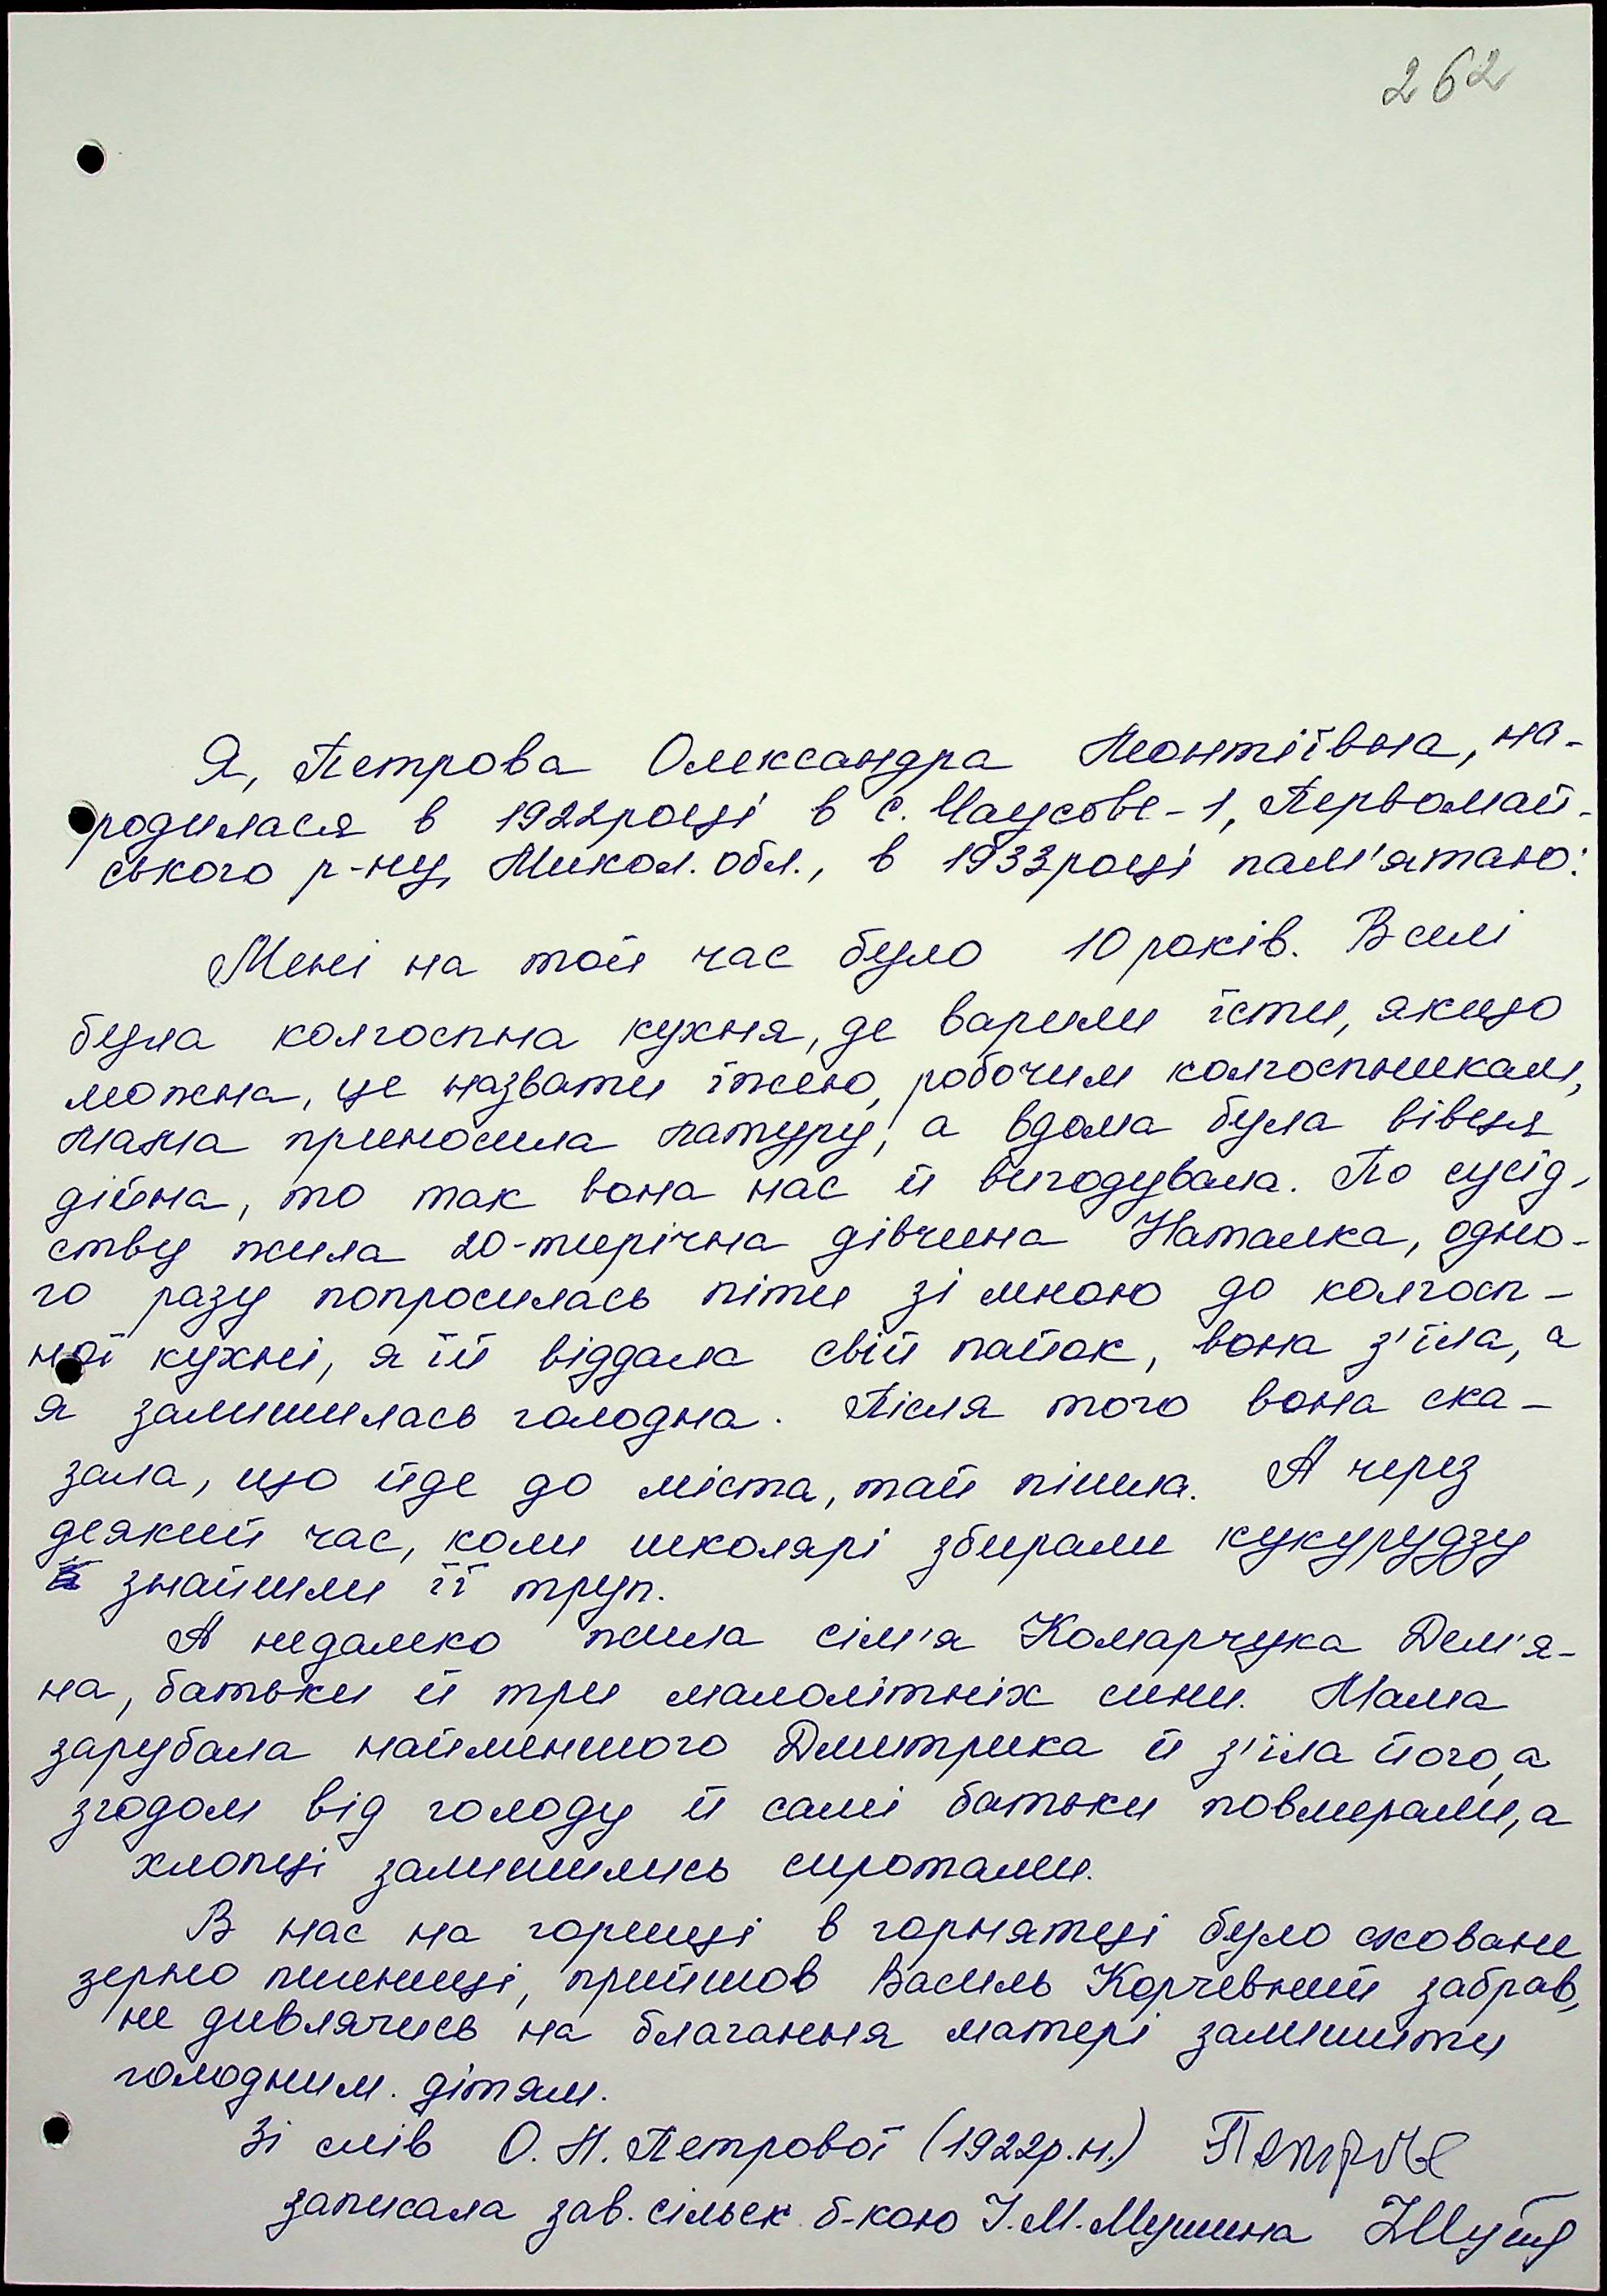 262
Я, Петрова Олександра Леонтіївна, на-
родилася в 1922році в с. Чаусове-1, Первомай-
ського р-ну, Микол. обл., в 1933році пам'ятаю:
Мені на той час було 10 років. В селі
була колгоспна кухня, де варили їсти, якщо
можна, це назвати їжею, робочим колгоспникам,
мама приносила латуру, а вдома була вівця
дійна, то так вона нас й вигодувала. По сусід-
ству жила 20-тирічна дівчина Наталка, одно-
го разу попросилась піти зі мною до колгосп-
ної кухні, я їй віддала свій пайок, вона з'їла, а
я залишилась голодна. Після того вона ска-
зала, що йде до міста, тай пішла. А через
деякий час, коли школярі збирали кукурудзу
знайшли її труп.
А недалеко жила сім'я Комарчука Дем'я-
на, батьки й три малолітніх сини. Мама
зарубала найменшого Дмитрика й з'їла його, а
згодом від голоду й самі батьки повмерали, а
хлопці залишились сиротами.
В нас на горищі в горнятці було сховане
зерно пшениці, прийшов Василь Корчевний забрав,
не дивлячись на благання матері залишити
голодним. дітям.
Зі слів О. Л. Петрової (1922р.н.)
записала зав. сільск. б-кою І. М. Мушина